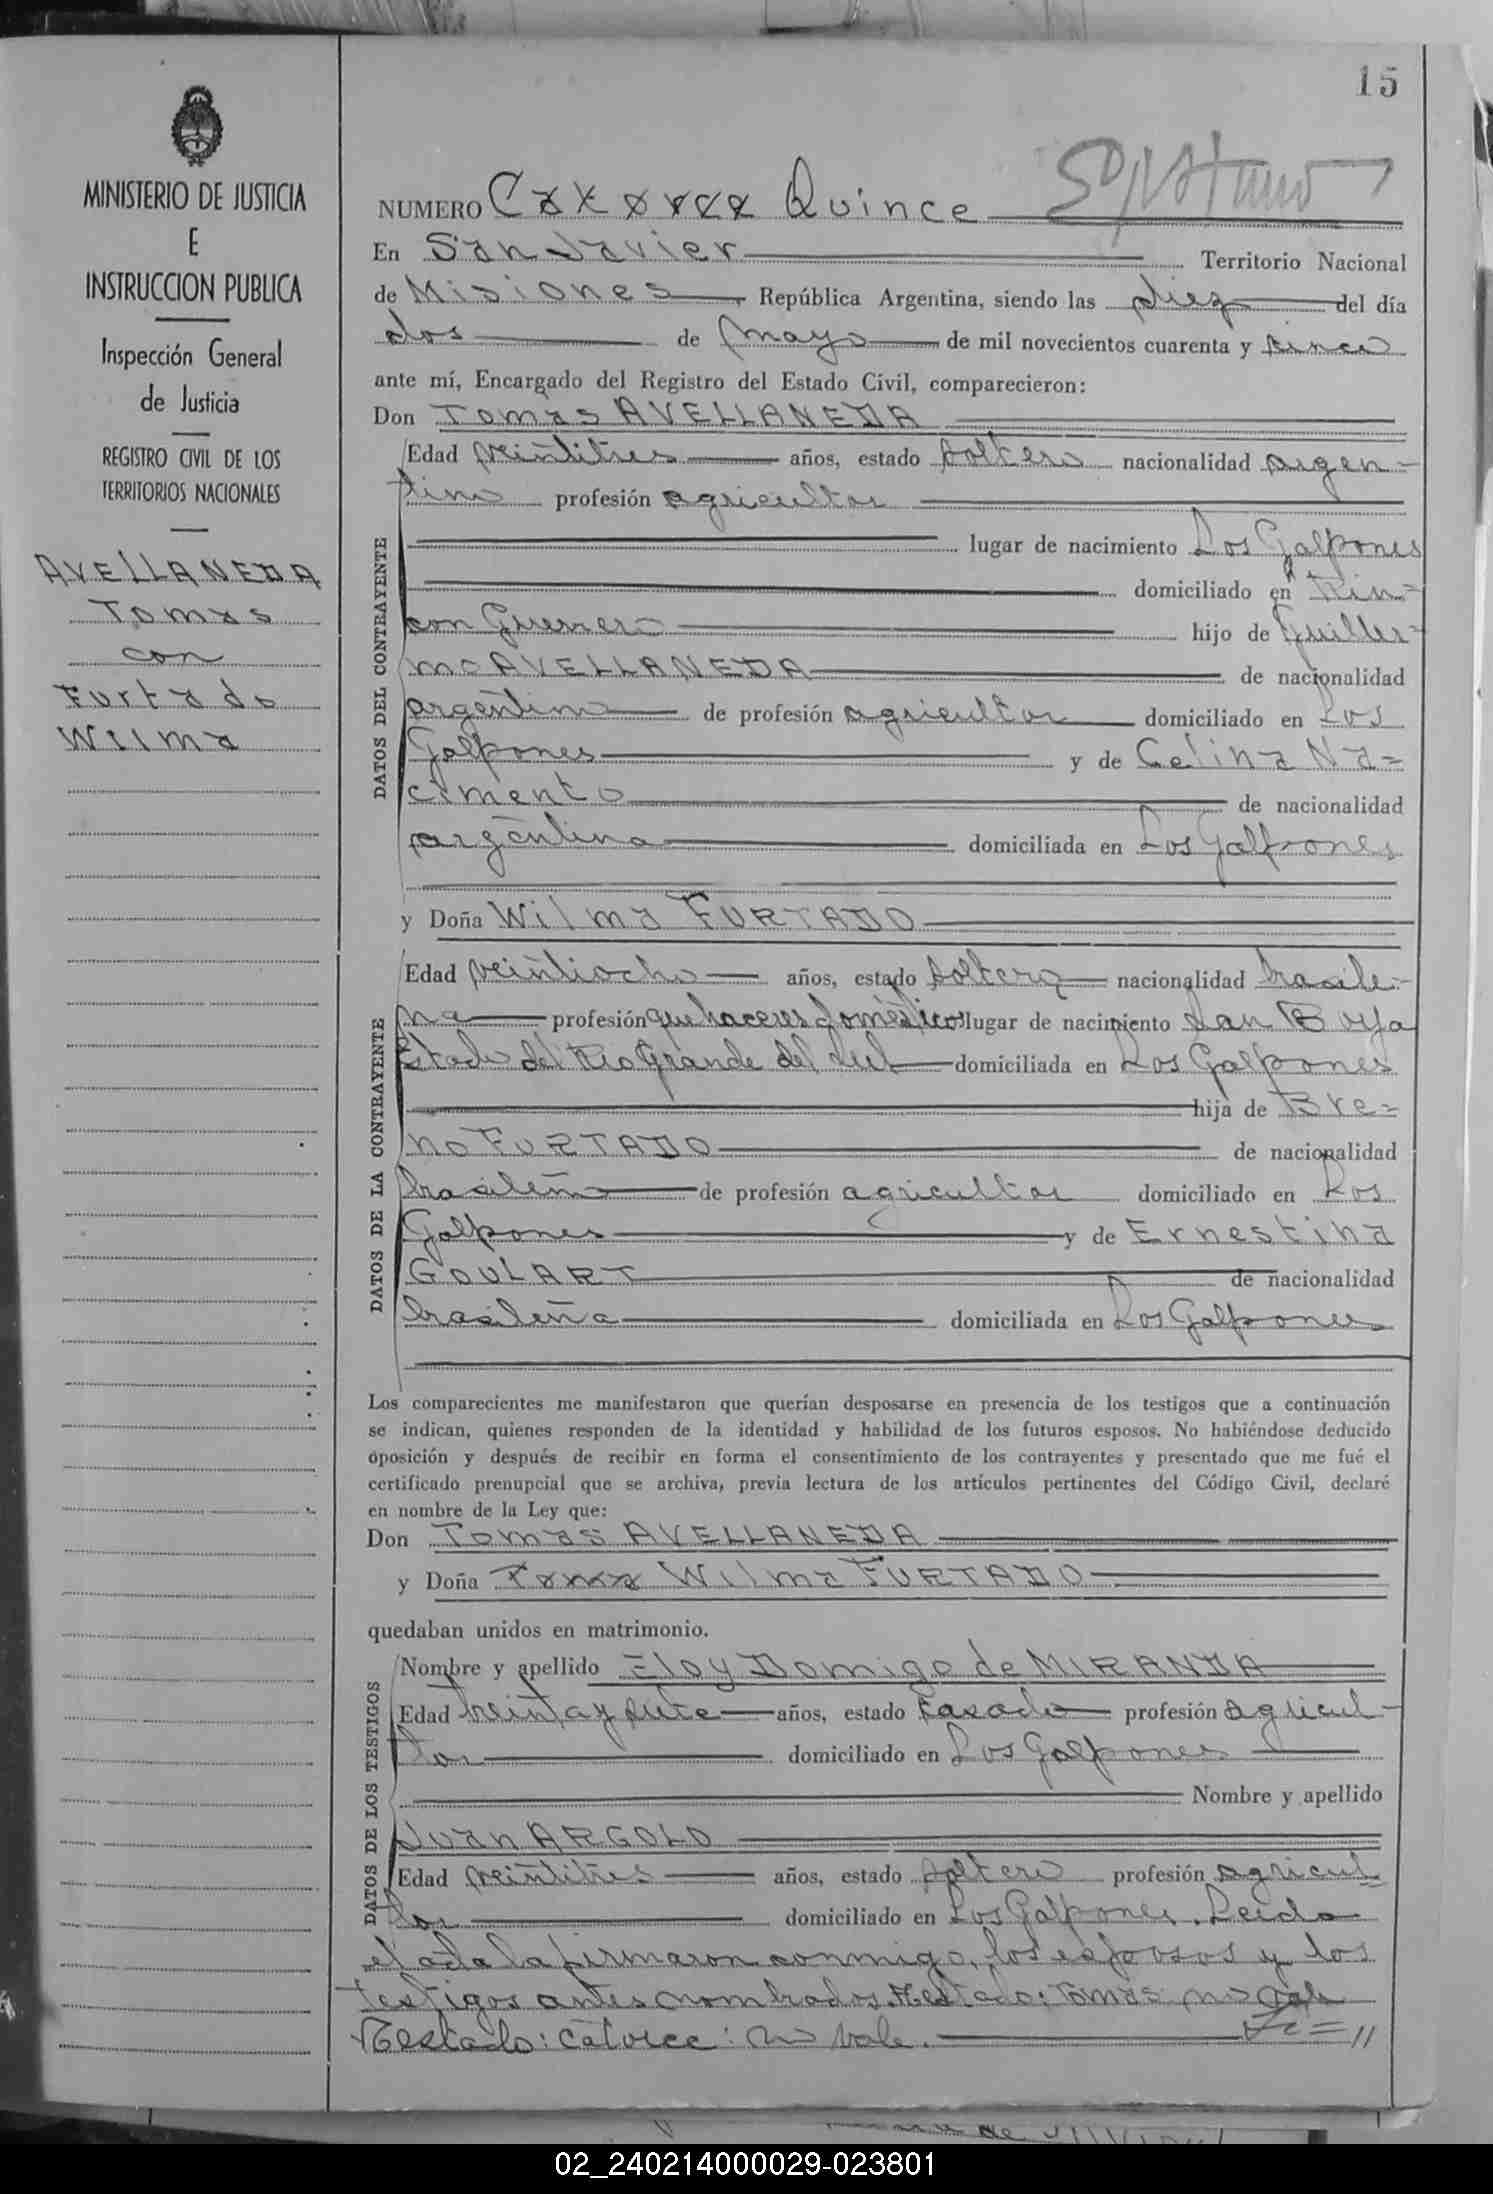 15
MINISTERIO DE JUSTICIA
E
INSTRUCCION PUBLICA
Inspección General
de Justicia
REGISTRO CIVIL DE LOS
TERRITORIOS NACIONALES
AVELLANEDA
Tomas
con
Furtado
Wilma
NUMERO Catorce Quince
En San Javier Territorio Nacional
de Misiones, República Argentina, siendo las diez del día
dos de mayo de mil novecientos cuarenta y cinco
ante mí, Encargado del Registro del Estado Civil, comparecieron:
Don Tomas AVELLANEDA
DATOS DEL CONTRAYENTE
Edad veintitres años, estado soltero nacionalidad argen-
tino profesión agricultor
lugar de nacimiento Los Galpones
domiciliado en Rin-
con Guerrero hijo de Guiller-
mo AVELLANEDA de nacionalidad
argentino de profesión agricultor domiciliado en Los
Galpones y de Celina Na=
cimento de nacionalidad
argentina domiciliada en Los Galpones
y Doña Wilma FURTADO
DATOS DE LA CONTRAYENTE
Edad veintiocho años, estado soltera nacionalidad brasile-
ña profesión quehaceres domésticos lugar de nacimiento San Borja
Estado del Rio Grande del Sul domiciliada en Los Galpones
hija de Bre=
no FURTADO de nacionalidad
brasileño de profesión agricultor domiciliado en Los
Galpones y de Ernestina
GOULART de nacionalidad
brasileña domiciliada en Los Galpones
Los comparecientes me manifestaron que querían desposarse en presencia de los testigos que a continuación
se indican, quienes responden de la identidad y habilidad de los futuros esposos. No habiéndose deducido
oposición y después de recibir en forma el consentimiento de los contrayentes y presentado que me fué el
certificado prenupcial que se archiva, previa lectura de los artículos pertinentes del Código Civil, declaré
en nombre de la Ley que:
Don Tomas AVELLANEDA
y Doña Tomas Wilma FURTADO
quedaban unidos en matrimonio.
DATOS DE LOS TESTIGOS
Nombre y apellido Eloy Domigo de MIRANDA
Edad treinta y siete años, estado casado profesión agricul-
tor domiciliado en Los Galpones
Nombre y apellido
Juan ARGOLO
Edad veintitres años, estado soltero profesión agricul
tor domiciliado en Los Galpones. Leida
el acta la firmaron conmigo, los esposos y los
testigos antes nombrados. Testado: Tomas no vale
Testado: catorce: no vale.
02_240214000029-023801